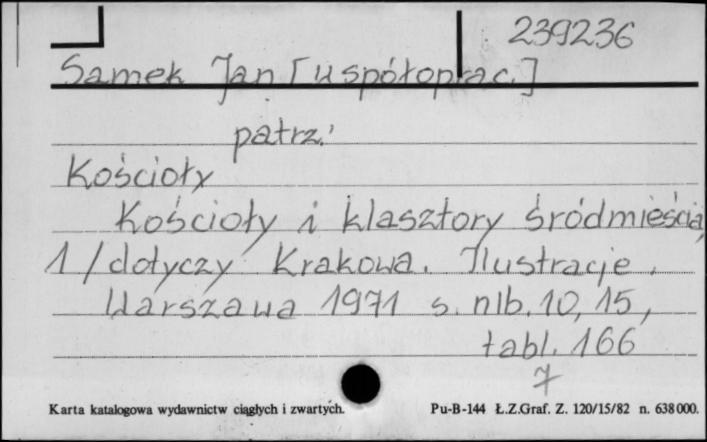 239236
Samek Jan [współoprac.]
patrz:
Kościoły
Kościoły i klasztory śródmieścia,
1/dotyczy Krakowa. Ilustracje,
Warszawa 1971 s. nlb. 10, 15,
tabl. 166
7
Karta katalogowa wydawnictw ciągłych i zwartych. Pu-B-144 Ł.Z.Graf. Z. 120/15/82 n. 638000.